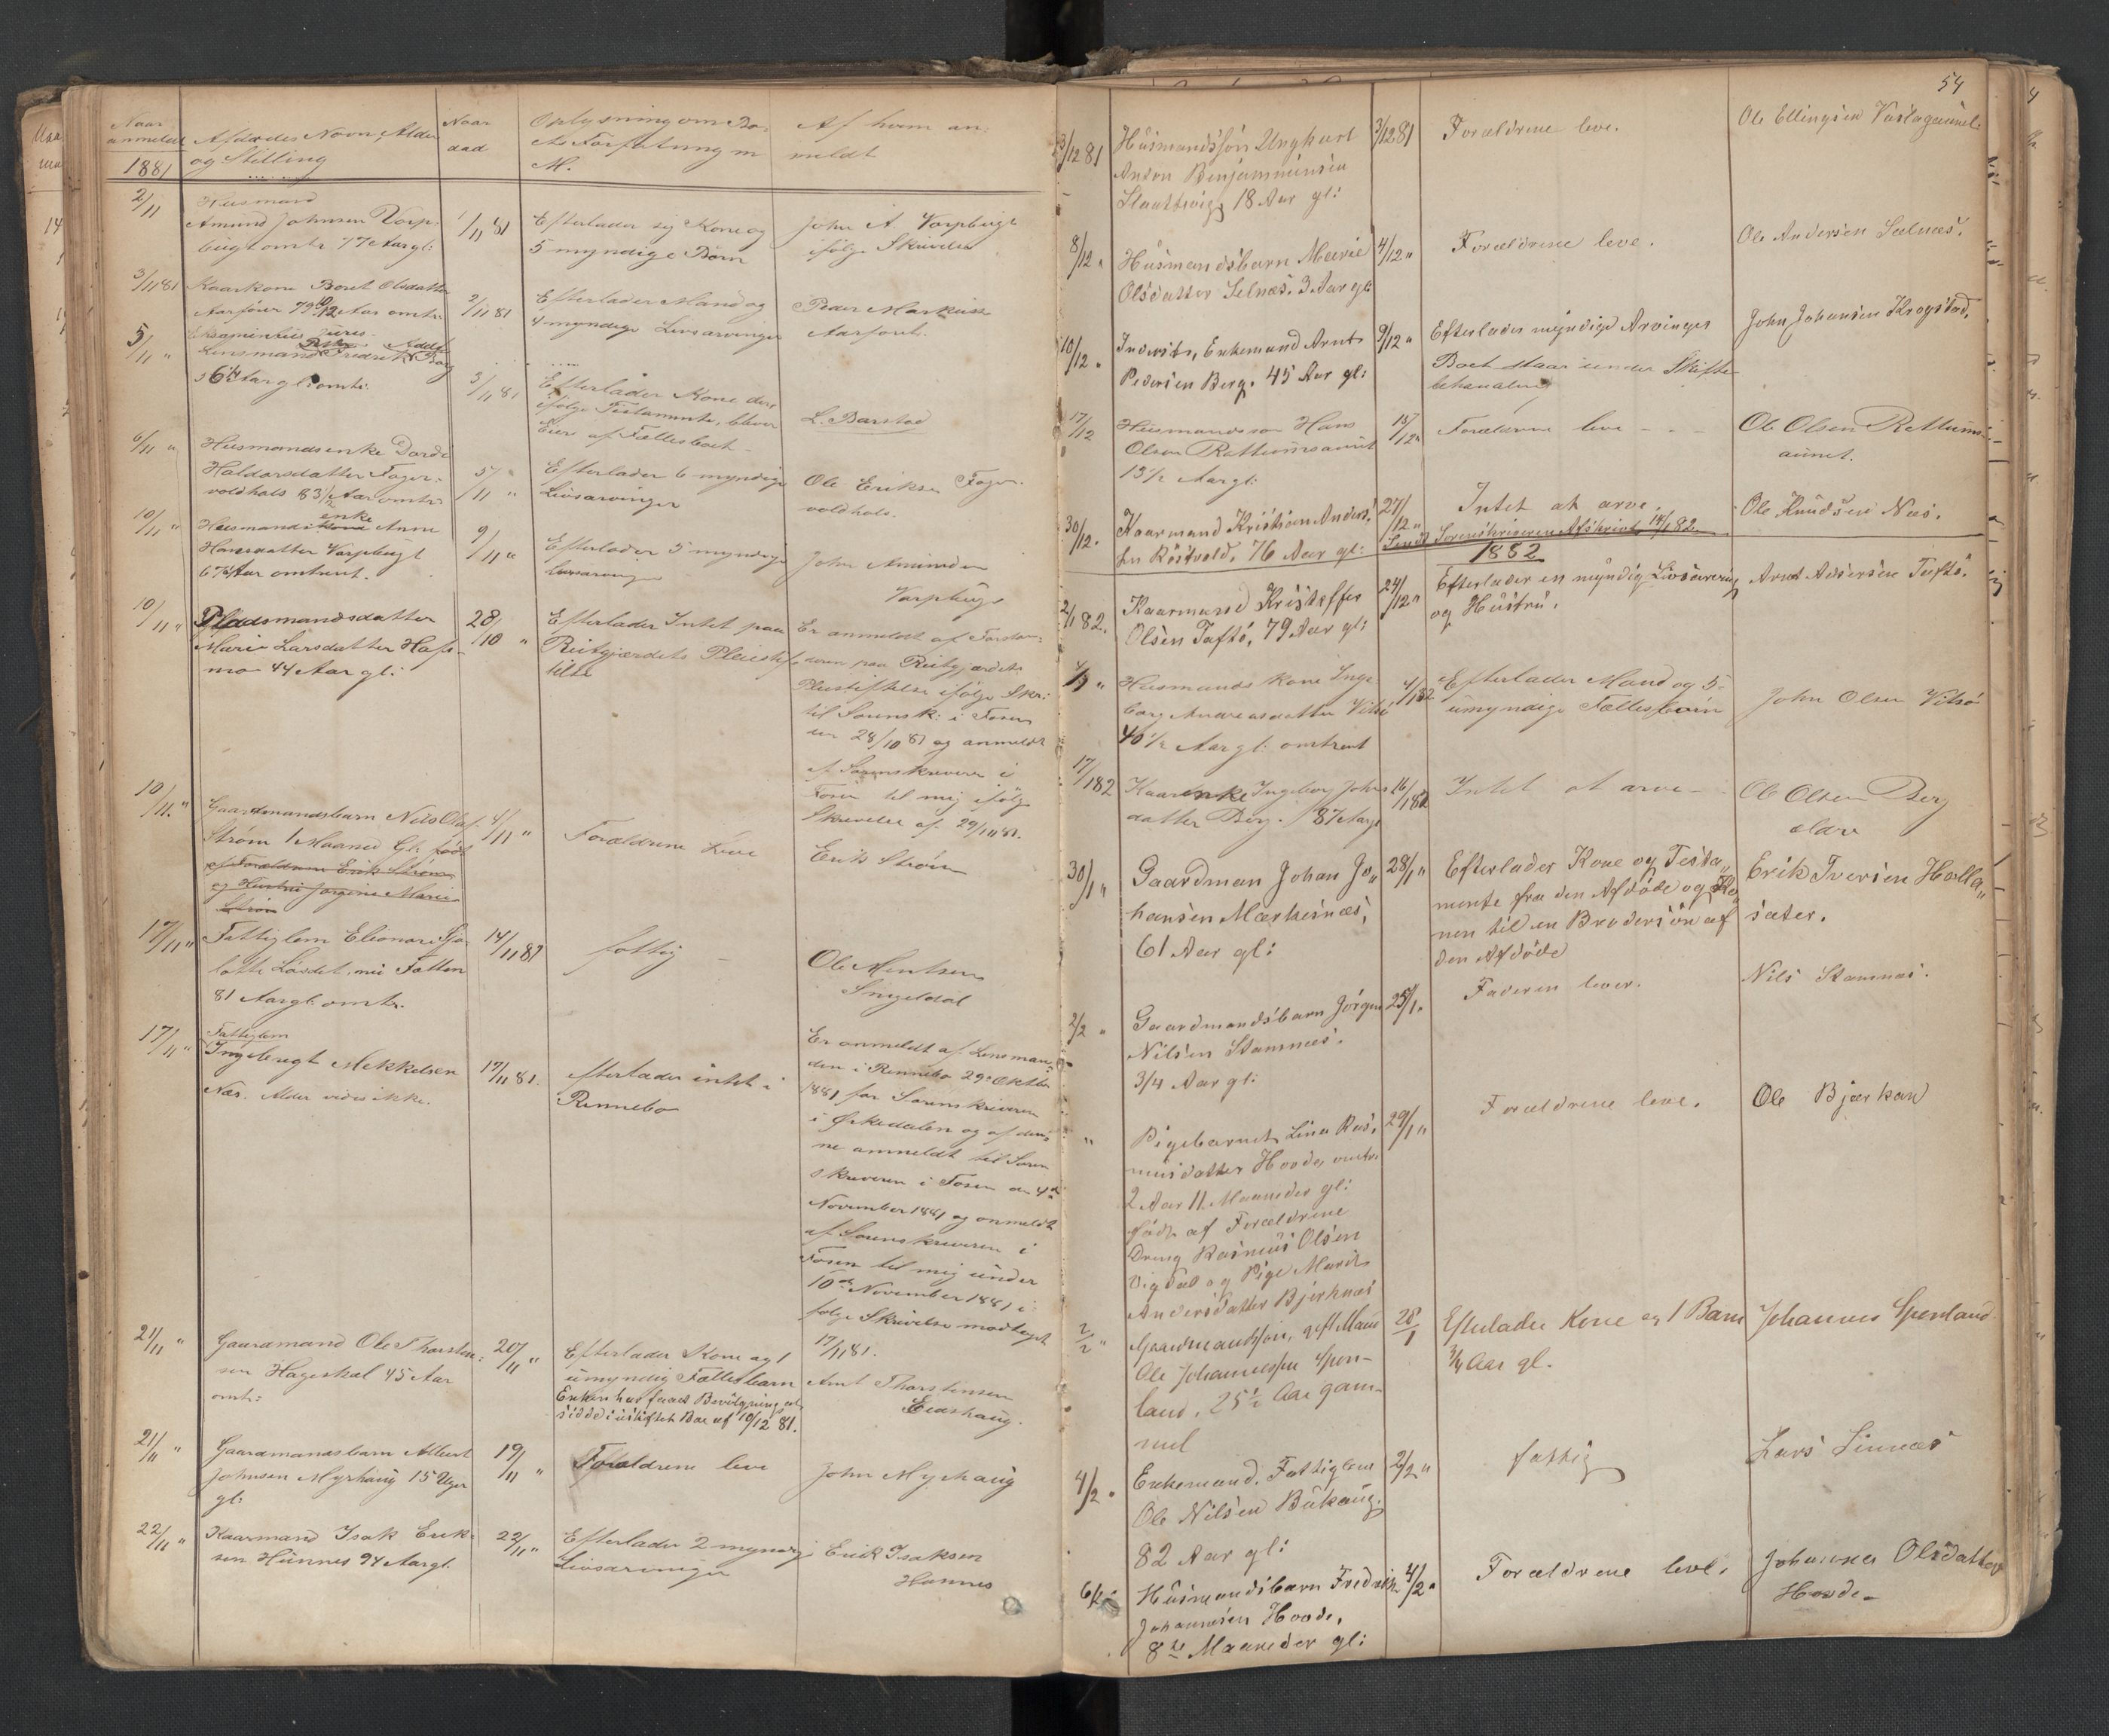 Naar anmeldt
1881
Afdødes Navn, Alder
og Stilling
Naar
død
Oplysning om Bo-
ets Forfatning m
M.
Af hvem an-
meldt
2/11
Husmand
Amund Johnsen Varp-
bugt omtr 77 Aar gl:
1/11 81
Efterlader sig Kone og
5 myndige Børn
John A. Varpbugt
ifølge Skrivelse
3/11 81
Kaarkone Beret Olsdatter
Aarfoer 79 Aar omtr.
2/11 81
Efterlader Mand og
4 myndige Livsarvinger
Peder Markusen
Aarfoer.
5/11 "
Lensmand Fredrik
Aar gl: omtr.
3/11 81
Efterlader Kone der
ifølge Testamente, bliver
Eier af Fællesboet
L. Barstad
6/11 "
Husmandsenke Dordi
Haldorsdatter Fager-
voldhals 83 1/2 Aar omtr.
5/11 "
Efterlader 6 myndige
Livsarvinger
Ole Eriksen Fager-
voldhals.
10/11 "
enke
Husmands Anne
Hansdatter Varpbugt
Aar omtrent.
9/11 "
Efterlader 5 myndige
Livsarvinger
John Amundsen
Varpbugt
10/11 "
Pladsmandsdatter
Marie Larsdatter Hafs-
mo 44 Aar gl:
28/10 "
Efterlader Intet paa
Reitgjærdets Pleiestif-
telse
Er anmeldt af Forstan-
deren paa Reitgjærdets
Pleiestiftelse ifølge Skr:
til Sorensk: i Fosen
den 28/10 81 og anmeldt
af Sorenskriveren i
Fosen til mig ifølge
Skrivelse af 29/10 81.
10/11 "
Gaardmandsbarn Nils Olaf
Strøm 1 Maaned Gl: født
af Forældrene Erik Strøm
og Hustru Jørgine Marie
Strøm
4/11 "
Forældrene Leve
Erik Strøm
17/11 "
Fattiglem Eleonore
lotte Løvdet, Fatten
81 Aar gl: omtr.
14/11 81
fattig
Ole Mentsen
Singsdal
17/11 "
Fattiglem
Ingebrigt Mekkelsen
Næs. Alder vides ikke.
17/11 81.
efterlader intet i
Rennebo
Er anmeldt af Lensman-
den i Rennebo 29de Oktbr
1881 for Sorenskriveren
i Ørkedalen og af den-
ne anmeldt til Soren-
skriveren i Fosen den 4de
November 1881 og anmeldt
af Sorenskriveren i
Fosen til mig under
10de November 1881 i-
følge Skrivelse modtaget
17/11 81.
21/11 "
Gaardmand Ole Thorsten-
sen Hageskal 45 Aar
omtr:
20/11 "
Efterlader Kone og 1
umyndig Fællesbarn
Enken har faaet Bevilgning at
sidde i uskiftet Bo af 10/12 81.
Arnt Thorstensen
Eidshaug.
21/11 "
Gaardmandsbarn Albert
Johnsen Myrhaug 15 Uger
gl:
19/11 "
Forældrene leve
John Myrhaug
22/11 "
Kaarmand Isak Erik-
sen Hunnes 94 Aar gl.
22/11 "
Efterlader 2 myndige
Livsarvinger
Erik Isaksen
Hunnes
54
3/12 81
Husmandssøn Ungkarl
Anton Benjaminsen
Slaattvig, 18 Aar gl:
3/12 81
Forældrene leve.
Ole Ellingsen
8/12 "
Husmandsbarn Marie
Olsdatter Selnæs. 3 Aar gl:
4/12 "
Forældrene leve.
Ole Andersen Selnæs.
10/12 "
Inderst, Enkemand Arnt
Pedersen Berg. 45 Aar gl:
9/12 "
Efterlader myndige Arvinger
Boet staar under Skifte-
behandling
John Johansen Krogstad.
17/12
Husmandssøn Hans
Olsen Rathumsaunet
13 1/2 Aar gl:
15/12 "
Forældrene leve - - -
Ole Olsen Rathums-
aunet.
30/12 "
Kaarmand Kristian Anders-
sen Røstvold, 76 Aar gl:
27/12 "
Intet at arve.
Ole Knudsen Næs.
Sendt Sorenskriveren Afskrivt 14/1 82.
1882
2/1 82.
Kaarmand Kristoffer
Olsen Taftø, 79 Aar gl:
24/12 "
Efterlader en myndig Livsarving
og Hustru.
Arnt Andersen Taftø.
Husmands kone Inge-
borg Andreasdatter Vitsø
46 1/2 Aar gl: omtrent
4/1 82
Efterlader Mand og 5
umyndige Fællesbørn
John Olsen Vitsø
17/1 82
Kaarenke Ingeborg Johns-
datter Berg. 87 Aar gl
16/1 82
Intet at arve -
Ole Olsen Berg
ældre
30/1 "
Gaardman Johan Jo-
hansen Mærkesnæs,
61 Aar gl:
28/1 "
Efterlader Kone og Testa-
mente fra den Afdøde og Ko-
nen til en Brodersøn af
den Afdøde
Erik Iversen Holla-
sæter.
2/2 "
Gaardmandsbarn Jørgen
Nilsen Stamnæs.
3/4 Aar gl:
25/1 "
Faderen lever.
Nils Stamnæs.
"
Pigebarnet Lina Ras-
musdatter Hovde, omtr.
2 Aar 11 Maaneder gl:
født af Forældrene
Dreng Rasmus Olsen
Vigdal og Pige Marit
Andersdatter Bjerknæs
29/1 "
Forældrene leve.
Ole Bjørkan
2/2 "
Gaardmandssøn, gift Mand
Ole Johannessen Spen-
land. 25 1/2 Aar gam-
mel
28/1
Efterlader Kone og 1 Barn
3/4 Aar gl.
Johannes Spenland
4/2 "
Enkemand. Fattiglem
Ole Nilsen Bukaug.
82 Aar gl:
2/2 "
fattig
Lars Simnæs
6/2 "
Husmandsbarn Fredrik
Johannsen Hovde,
8te Maaneder gl:
4/2 "
Forældrene leve.
Johanna Olsdatter
Hovde